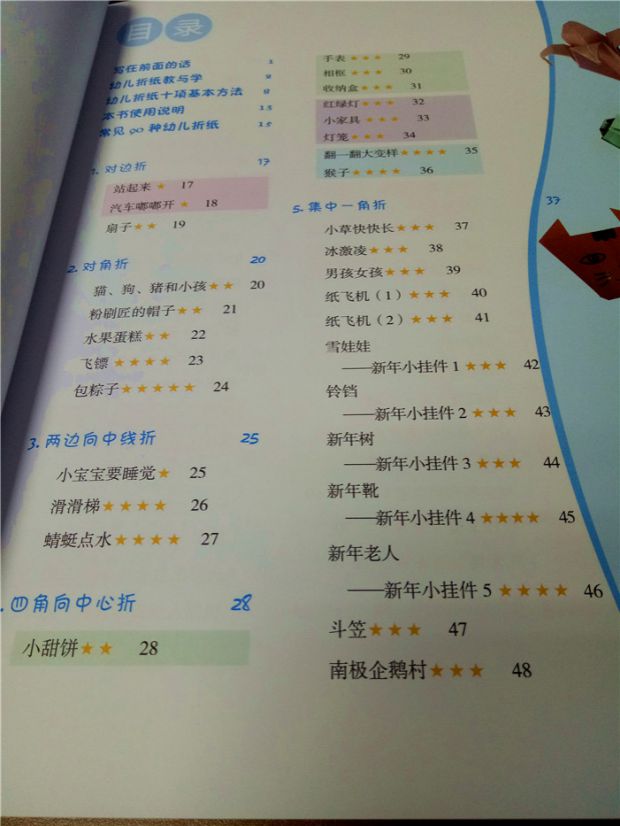 目录
写在前面的话 1
幼儿折纸教与学 2
幼儿折纸十项基本方法 8
本书使用说明 13
常见90种幼儿折纸 15
1. 对边折 17
站起来★ 17
汽车嘟嘟开★ 18
扇子★★ 19
2. 对角折 20
猫、狗、猪和小孩★★ 20
粉刷匠的帽子★★ 21
水果蛋糕★★ 22
飞镖★★★★ 23
包粽子★★★★★ 24
3. 两边向中线折 25
小宝宝要睡觉★ 25
滑滑梯★★★★ 26
蜻蜓点水★★★★ 27
. 四角向中心折 28
小甜饼★★ 28
手表★★★ 29
相框★★★ 30
收纳盒★★★ 31
红绿灯★★★ 32
小家具★★★ 33
灯笼★★★ 34
翻一翻大变样★★★★ 35
猴子★★★★ 36
5. 集中一角折 37
小草快快长★★★ 37
冰激凌★★★ 38
男孩女孩★★★ 39
纸飞机(1)★★★ 40
纸飞机(2)★★★ 41
雪娃娃
——新年小挂件1★★★ 42
铃铛
——新年小挂件2★★★ 43
新年树
——新年小挂件3★★★ 44
新年靴
——新年小挂件4★★★★ 45
新年老人
——新年小挂件5★★★★ 46
斗笠★★★ 47
南极企鹅村★★★ 48